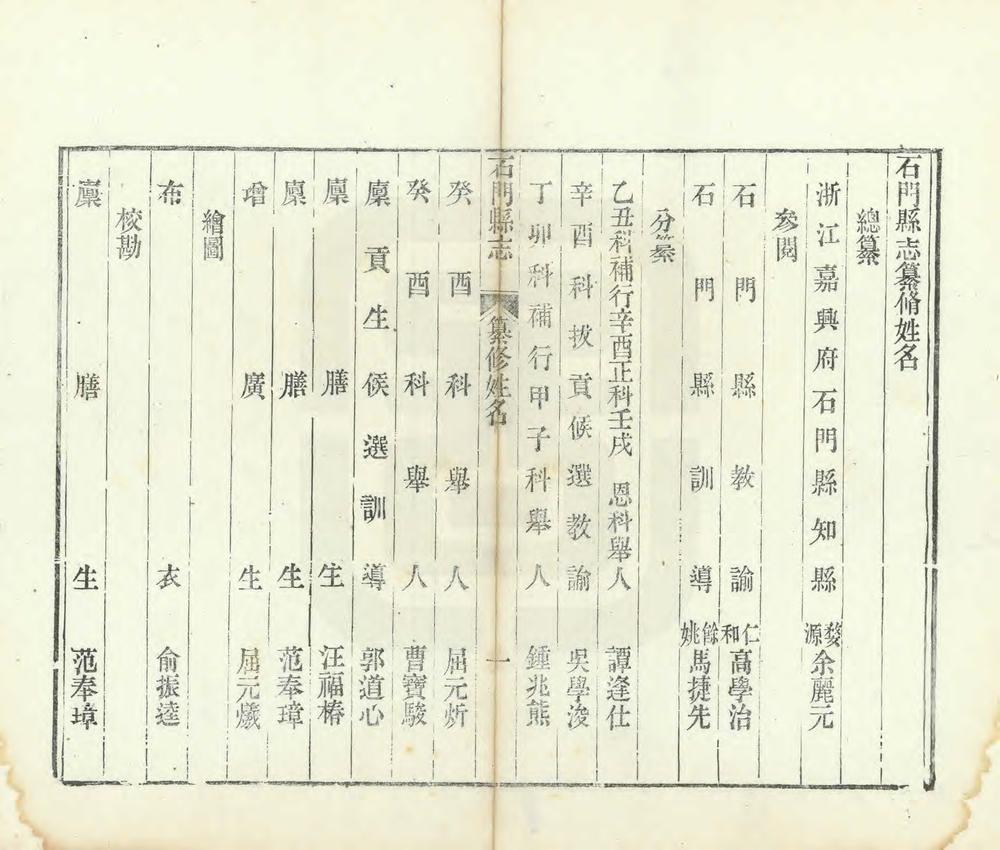 石門縣志纂脩姓名
總纂
浙江嘉興府石門縣知縣婺源余麗元
參閱
石門縣教諭仁和高學治
石門縣訓導餘姚馬捷先
分纂
乙丑科補行辛酉正科壬戌恩科舉人譚逢仕
辛酉科拔貢候選教諭吳學浚
丁卯科補行甲子科舉人鍾兆熊
石門縣志 纂修姓名 一
癸酉科舉人屈元炘
癸酉科舉人曹寶駿
廩貢生候選訓導郭道心
廩膳生汪福椿
廩膳生范奉璋
增廣生屈元爔
繪圖
布衣俞振逵
校勘
廩膳生范奉璋